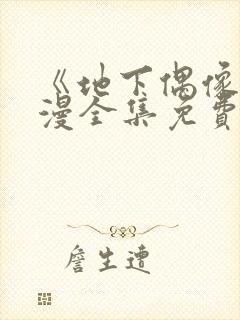 《地下偶像
漫全集免費
詹生遭